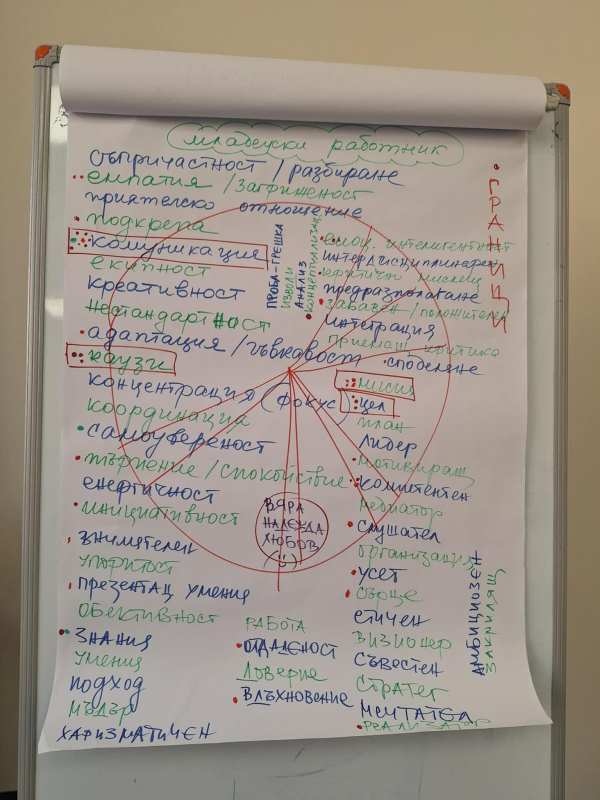 младежки работник
съпричастност / разбиране
емпатия / загриженост
приятелско отношение
подкрепа
комуникация
екипност
креативност
нестандартност
адаптация / гъвкавост
каузи
концентрация (фокус)
координация
самоувереност
търпение / спокойствие
енергичност
инициативност
внимателен
упоритост
презентац умения
обективност
знания
умения
подход
мъдър
харизматичен
ПРОБА-ГРЕШКА
ИЗВОДИ
АНАЛИЗ
ВЯРА
НАДЕЖДА
ЛЮБОВ
(:)
РАБОТА
ОТДАДЕНОСТ
Доверие
ВДЪХНОВЕНИЕ
емоц. интелигентност
интердисциплинарен
критично мислещ
предразполагане
забавен / положителен
интеграция
приемащ критика
споделяне
мисия
цел
план
лидер
мотивиращ
компетентен
медиатор
слушател
организация
усет
сърце
етичен
визионер
съвестен
стратег
мечтател
реализатор
ГРАНИЦИ
АМБИЦИОЗЕН
ЗАКРИЛЯЩ